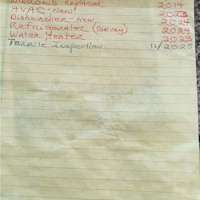 Windows Replaced 2014
HVAC - New 2023
Dishwasher - New 2024
Refrigerator (Convey) 2024
Water Heater 2023
Termite Inspection 11/2025